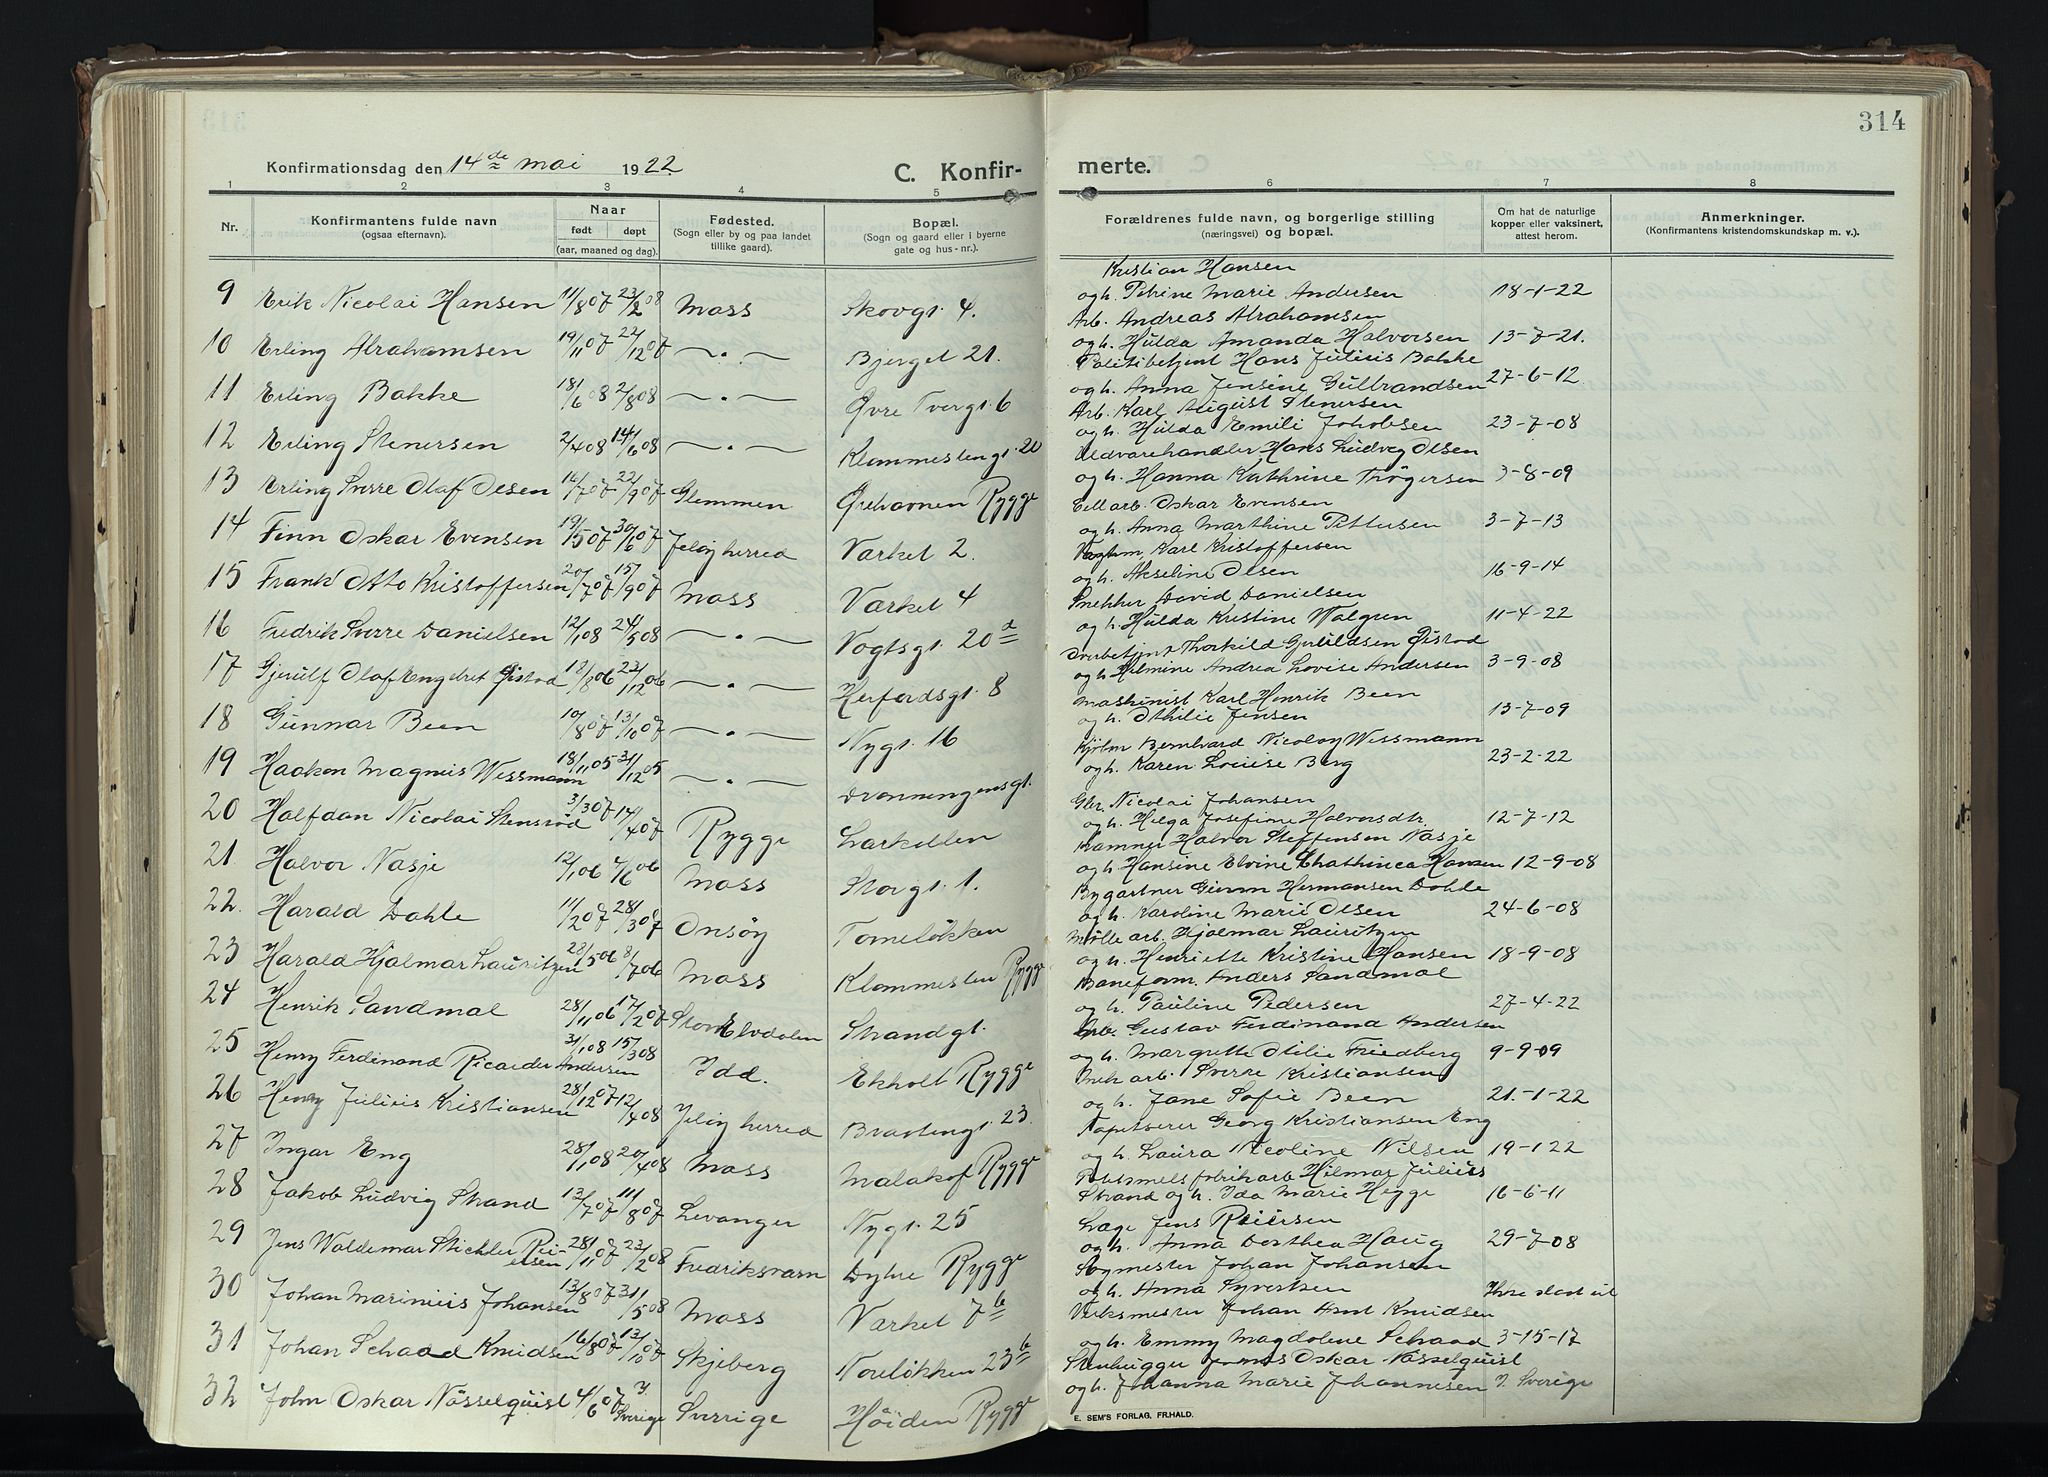 314
Konfirmationsdag den 14de mai 1922
C. Konfir-
merte.
1 2 3 4 5 6 7 8
Nr.
Konfirmantens fulde navn
(ogsaa efternavn).
Naar
født døpt
(aar, maaned og dag).
Fødested.
(Sogn eller by og paa landet
tillike gaard).
Bopæl.
(Sogn og gaard eller i byerne
gate og hus-nr.).
Forældrenes fulde navn, og borgerlige stilling
(næringsvei) og bopæl.
Om hat de naturlige
kopper eller vaksinert,
attest herom.
Anmerkninger.
(Konfirmantens kristendomskundskap m. v.).
Kristian Hansen
9 Erik Nicolai Hansen 11/8 07 23/2 08 Moss Skovgt. 4. og h. Petrine Marie Andersen 18-1-22
Arb. Andreas Abrahamsen
10 Erling Abrahamsen 19/11 07 22/12 07 —„— Bjerget 21. og h. Hulda Amanda Halvorsen 13-7-21.
Politibetjent Hans Julius Bakke
11 Erling Bakke 18/6 08 2/8 08 —„— Øvre Tvergt. 6 og h. Anna Jensine Gulbrandsen 27-6-12
Arb. Karl August Stenersen
12 Erling Stenersen 2/4 08 14/6 08 —„— Klommestengt. 20 og h. Hulda Emili Jakobsen 23-7-08
Uldvarehandler Hans Ludvig Olsen
13 Erling Sverre Olaf Olsen 14/7 07 22/9 07 Glemmen Rygge og h. Hanna Kathrine Trøgersen 3-8-09
Cell arb. Oskar Evensen
14 Finn Oskar Evensen 19/5 07 30/6 07 Jeløy herred Værket 2. og h. Anna Marthine Pettersen 3-7-13
Karl Kristoffersen
15 Frank Otto Kristoffersen 20/7 07 15/9 07 Moss Værket 4 og h. Akseline Olsen 16-9-14
Snekker David Danielsen
16 Fredrik Sverre Danielsen 12/1 08 24/5 08 —„— Vogtsgt. 20 og h. Hulda Kristine Walgren 11-4-22
Thorkild Gjulildsen Øistad
17 Gjeiulf Olaf Engebret Øistad 18/8 06 23/12 06 —„— Herfordsgt. 8 og h. Helmine Andrea Lovise Andersen 3-9-08
Maskinist Karl Henrik Been
18 Gunnar Been 10/8 07 13/10 07 —„— Nygt. 16 og h. Othilie Jensen 13-7-09
Kjøbm Bernhard Nicolay Wessmann
19 Haakon Magnus Wessmann 18/11 05 31/12 05 —„— Dronningensgt. og h. Karen Louise Berg 23-2-22
Gbr. Nicolai Johansen
20 Halfdan Nicolai Stensrød 3/3 07 14/4 07 Rygge Larkollen og h. Helga Josefine Halvorsdtr. 12-7-12
Halvor Steffensen Nasje
21 Halvor Nasje 12/1 06 4/6 06 Moss Storgt. 1. og h. Hansine Elvine Chathinca Hansen 12-9-08
Bygartner Gunm Hermansen Dahle
22. Harald Dahle 11/2 07 28/3 07 Onsøy Tomeløkken og h. Karoline Marie Olsen 24-6-08
Mølle arb. Hjalmar Lauritzen
23 Harald Hjalmar Lauritzen 28/5 06 8/7 06 Moss Klommesten Rygge og h. Henriette Kristine Hansen 18-9-08
Baneform. Anders Sandmæl
24 Henrik Sandmæl 28/11 06 17/2 07 Stor Elvdalen Strandgt. og h. Pauline Pedersen 27-4-22
Arb. Gustav Ferdinand Andersen
25 Henry Ferdinand Ricarder Andersen 31/1 08 15/3 08 Idd. Ekholt Rygge og h. Margrette Otilie Friedberg 9-9-09
Mek arb. Sverre Kristiansen
26 Henry Julius Kristiansen 28/12 07 12/4 08 Jeløy herred Bratengt. 23 og h. Jane Sofie Been 21.-1-22
Tapetserer Georg Kristiansen Eng
27 Ingar Eng 28/1 08 20/4 08 Moss Malakof Rygge og h. Laura Nicoline Nilsen 19-1-22
Hilmar Julius
28 Jakob Ludvig Strand 13/7 07 11/8 07 Levanger Nygt. 25 Strand og h. Ida Marie Hegge 16-6-11
Læge Jens Reiersen
29 Jens Waldemar Stichler Rei-
ersen 28/11 07 23/2 08 Fredriksværn Dyhre Rygge og h. Anna Dorthea Haug 29-7-08
Sagmester Johan Johansen
30 Johan Marinius Johansen 13/8 07 31/5 08 Moss Værket 7b og h. Anna Syvertsen
Verksmester Johan Arnt Knudsen
31 Johan Schaad Knudsen 16/8 07 13/10 07 Skjeberg Noreløkken 23b og h. Emmy Magdalene Schaad 3-15-17
Stenhugger Oskar Nässelquist
32 John Oskar Nässelquist 4/6 07 I Sverige Sverrige Høiden Rygge og h. Johanna Marie Johannesen I Sverige
E. SEM'S FORLAG, FR.HALD.